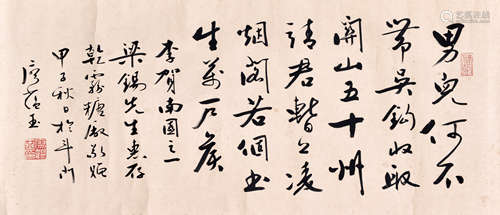 男兒何不
帶吳鈎收取
關山五十州
請君暫上凌
烟閣若個书
生萬户侯
李賀南園之一
梁錫先生惠存
乾霧糖厰敬
甲子秋日於斗门